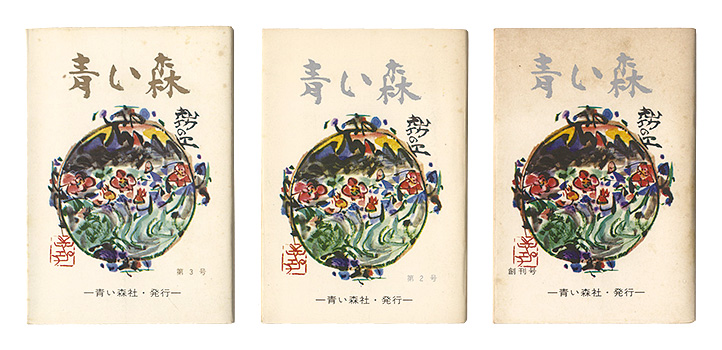 青い森
第3号
―青い森社・発行―
青い森
第2号
―青い森社・発行―
青い森
創刊号
―青い森社・発行―